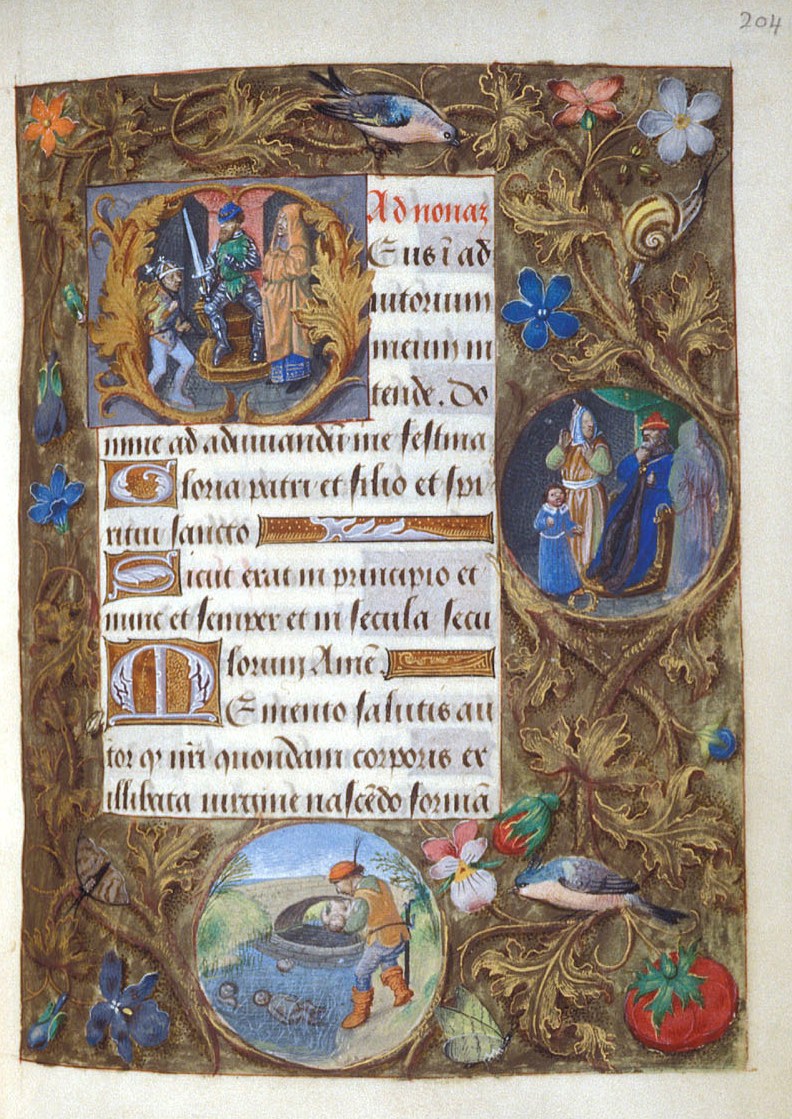 204
Ad nonaz
Eus ī ad
iutorium
meum in
tende. Do
mine ad adiuuandū me festina
Gloria patri et filio et spi
ritui sancto
Sicut erat in principio et
nunc et semper et in secula secu
lorum Amē.
MEmento salutis au
tor qͥ nr̄i quondam corporis ex
illibata uirgine nascēdo formā